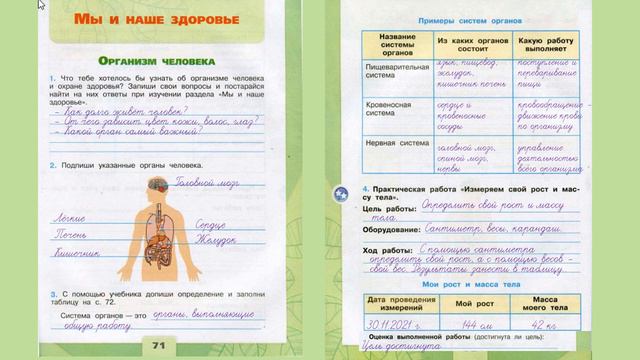 Мы и наше здоровье
Организм человека
1. Что тебе хотелось бы узнать об организме человека
и охране здоровья? Запиши свои вопросы и постарайся
найти на них ответы при изучении раздела «Мы и наше
здоровье».
- Как долго живёт человек?
- От чего зависит цвет кожи, волос, глаз?
- Какой орган самый важный?
2. Подпиши указанные органы человека.
Головной мозг
Лёгкие
Сердце
Печень
Желудок
Кишечник
3. С помощью учебника допиши определение и заполни
таблицу на с. 72.
Система органов — это органы, выполняющие
общую работу.
71
Примеры систем органов
Название
системы
органов
Из каких органов
состоит
Какую работу
выполняет
Пищеварительная
система
язык, пищевод,
желудок,
кишечник печень
поступление и
переваривание
пищи
Кровеносная
система
сердце и
кровеносные
сосуды
кровообращение -
движение крови
по организму
Нервная система
головной мозг,
спиной мозг,
нервы
управление
деятельностью
всего организма
4. Практическая работа «Измеряем свой рост и мас-
су тела».
Цель работы: Определить свой рост и массу
тела.
Оборудование: Сантиметр, весы, карандаш.
Ход работы: С помощью сантиметра
определить свой рост, а с помощью весов -
свой вес. Результаты занести в таблицу.
Мои рост и масса тела
Дата проведения
измерений
Мой рост
Масса
моего тела
30.11.2021 г.
144 см
42 кг
Оценка выполненной работы (достигнута ли цель):
Цель достигнута